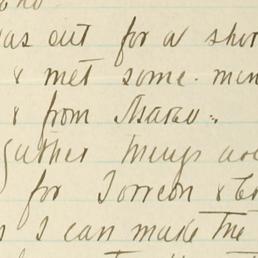 as out for a shor
& met some men
& from
gather things are
for Torreon &
I can make the